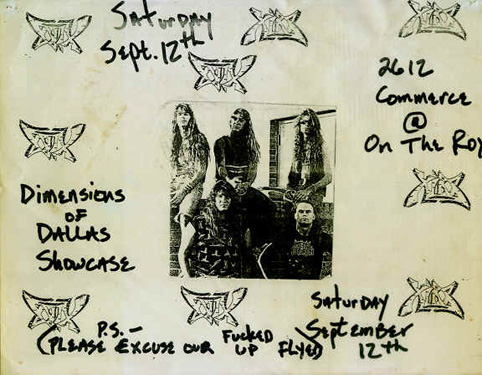 Saturday
Sept. 12th
2612
Commerce
@
On The Ro
Dimensions
of
Dallas
Showcase
Saturday
September
12th
P.S. –
(Please Excuse our Fucked up Flyer)